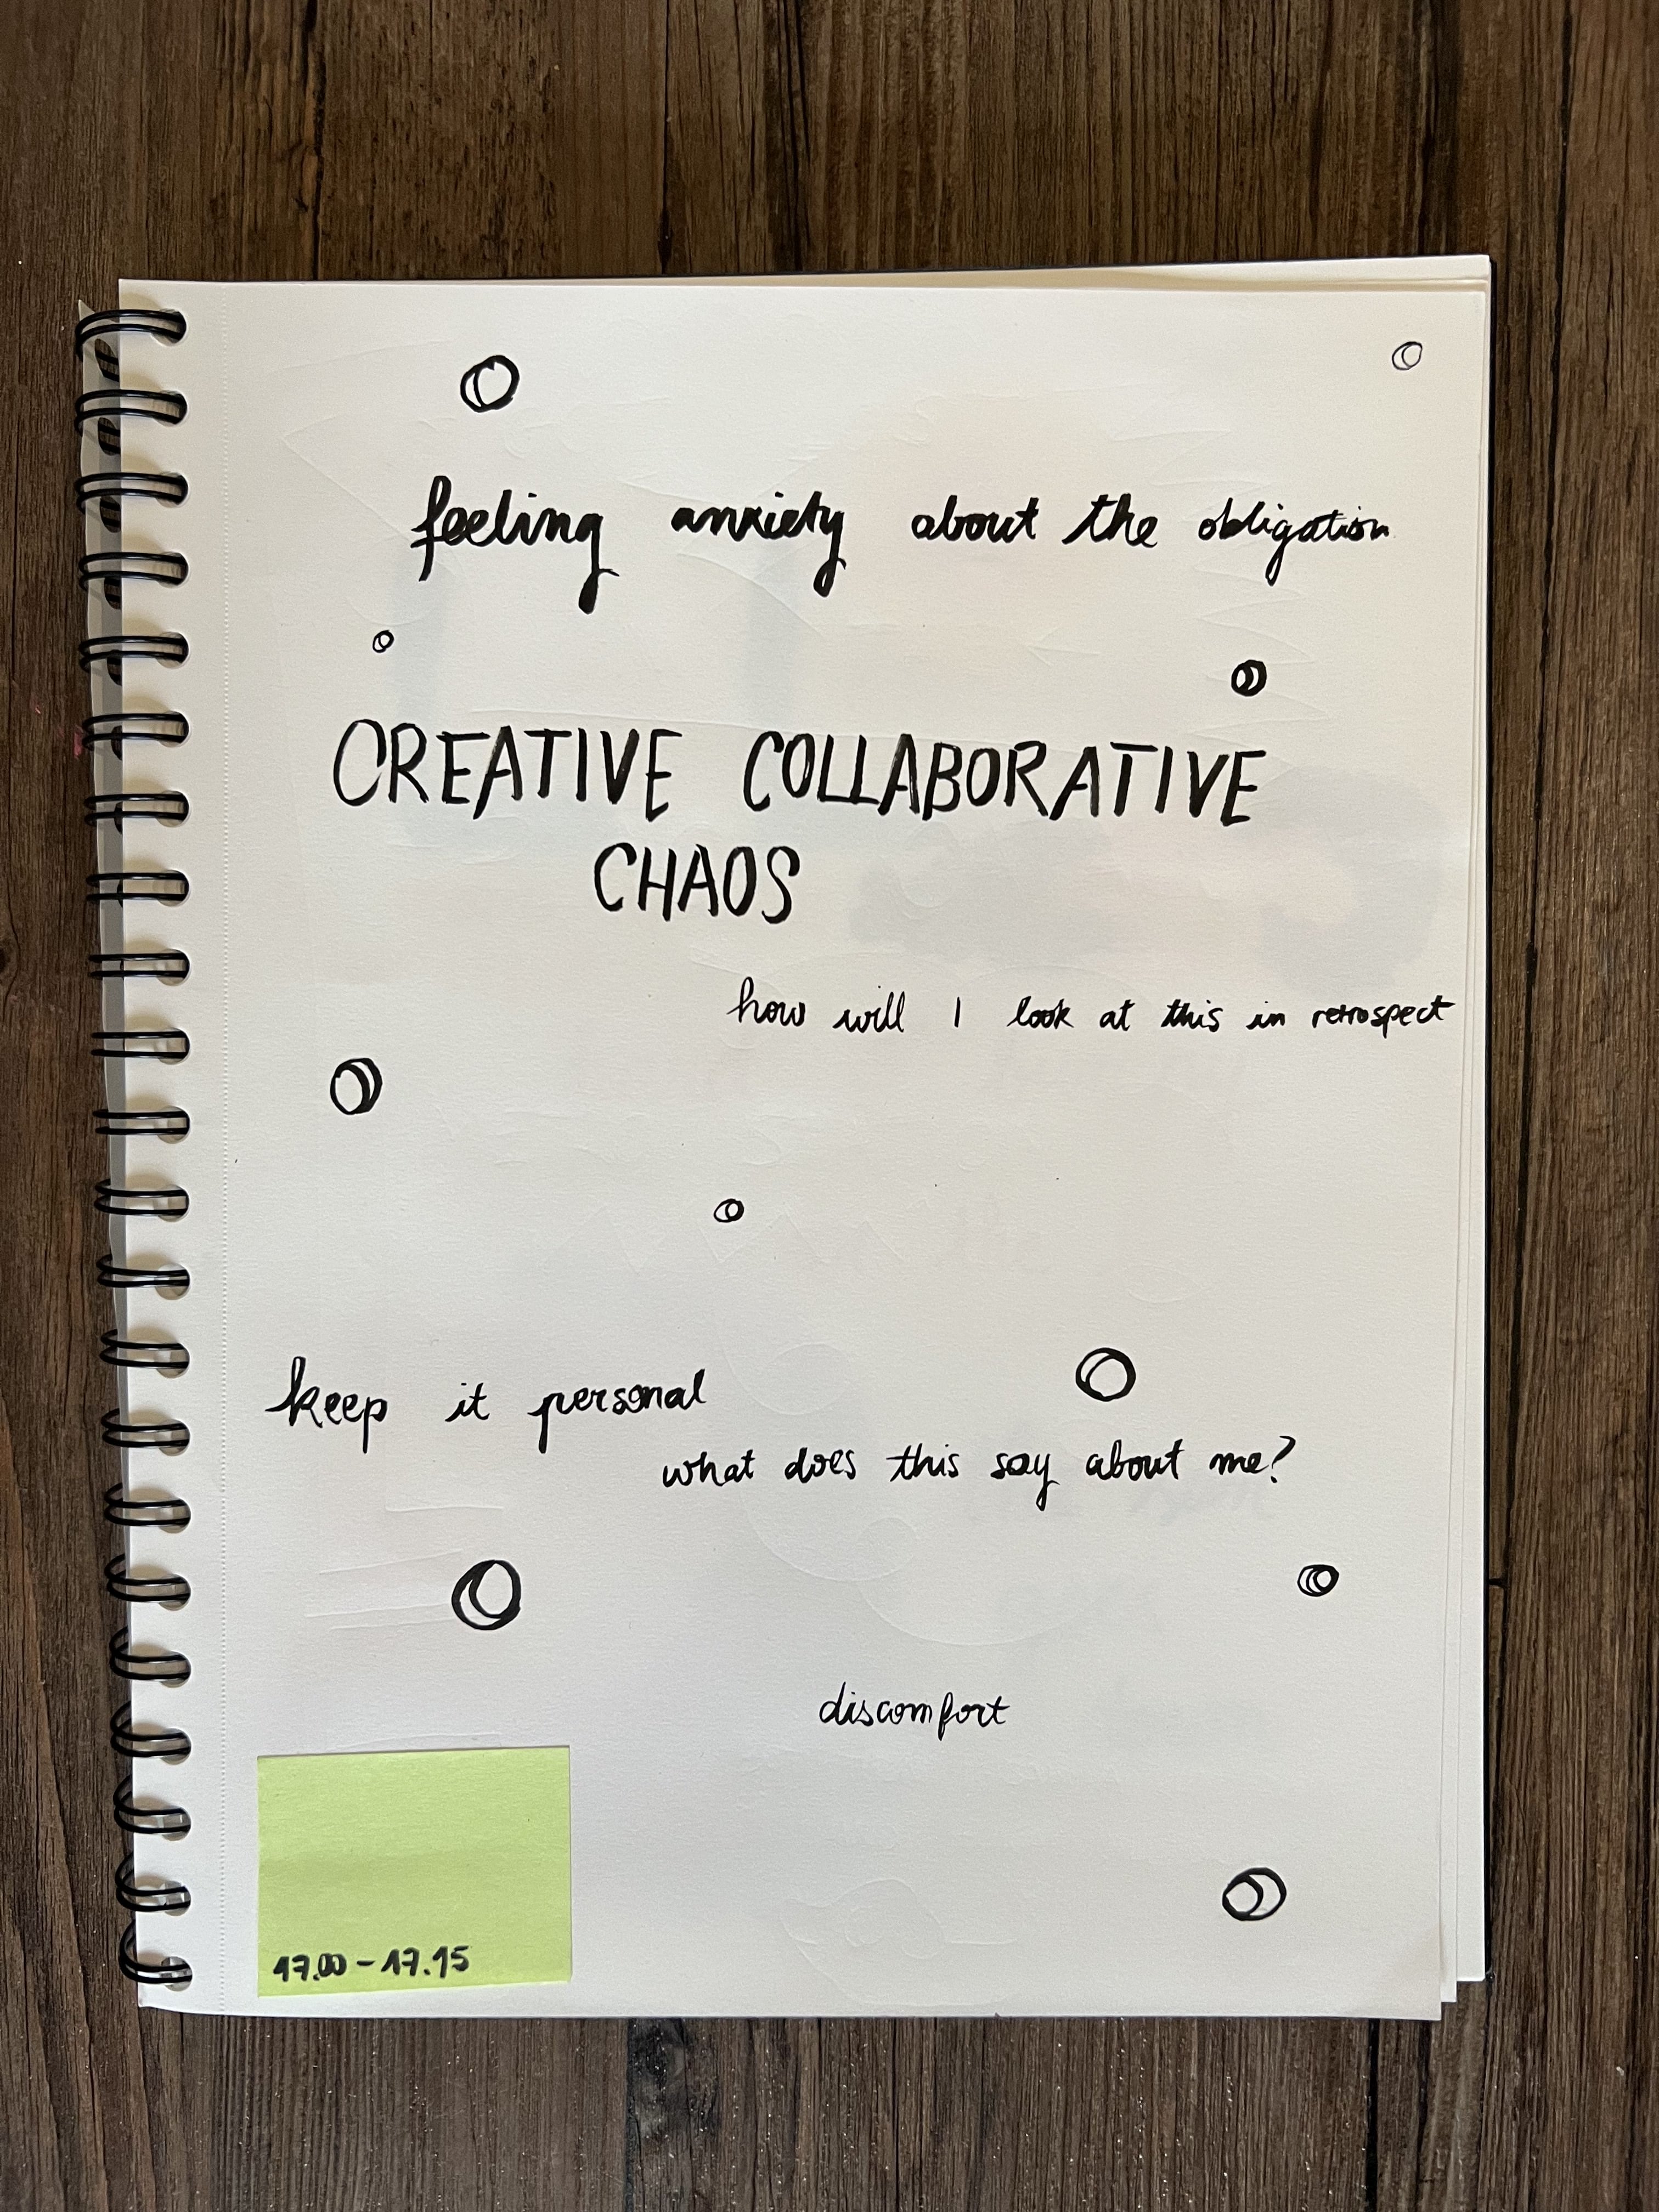 feeling anxiety about the obligation
CREATIVE COLLABORATIVE
CHAOS
how will I look at this in retrospect
keep it personal
what does this say about me?
discomfort
17.00 - 17.15